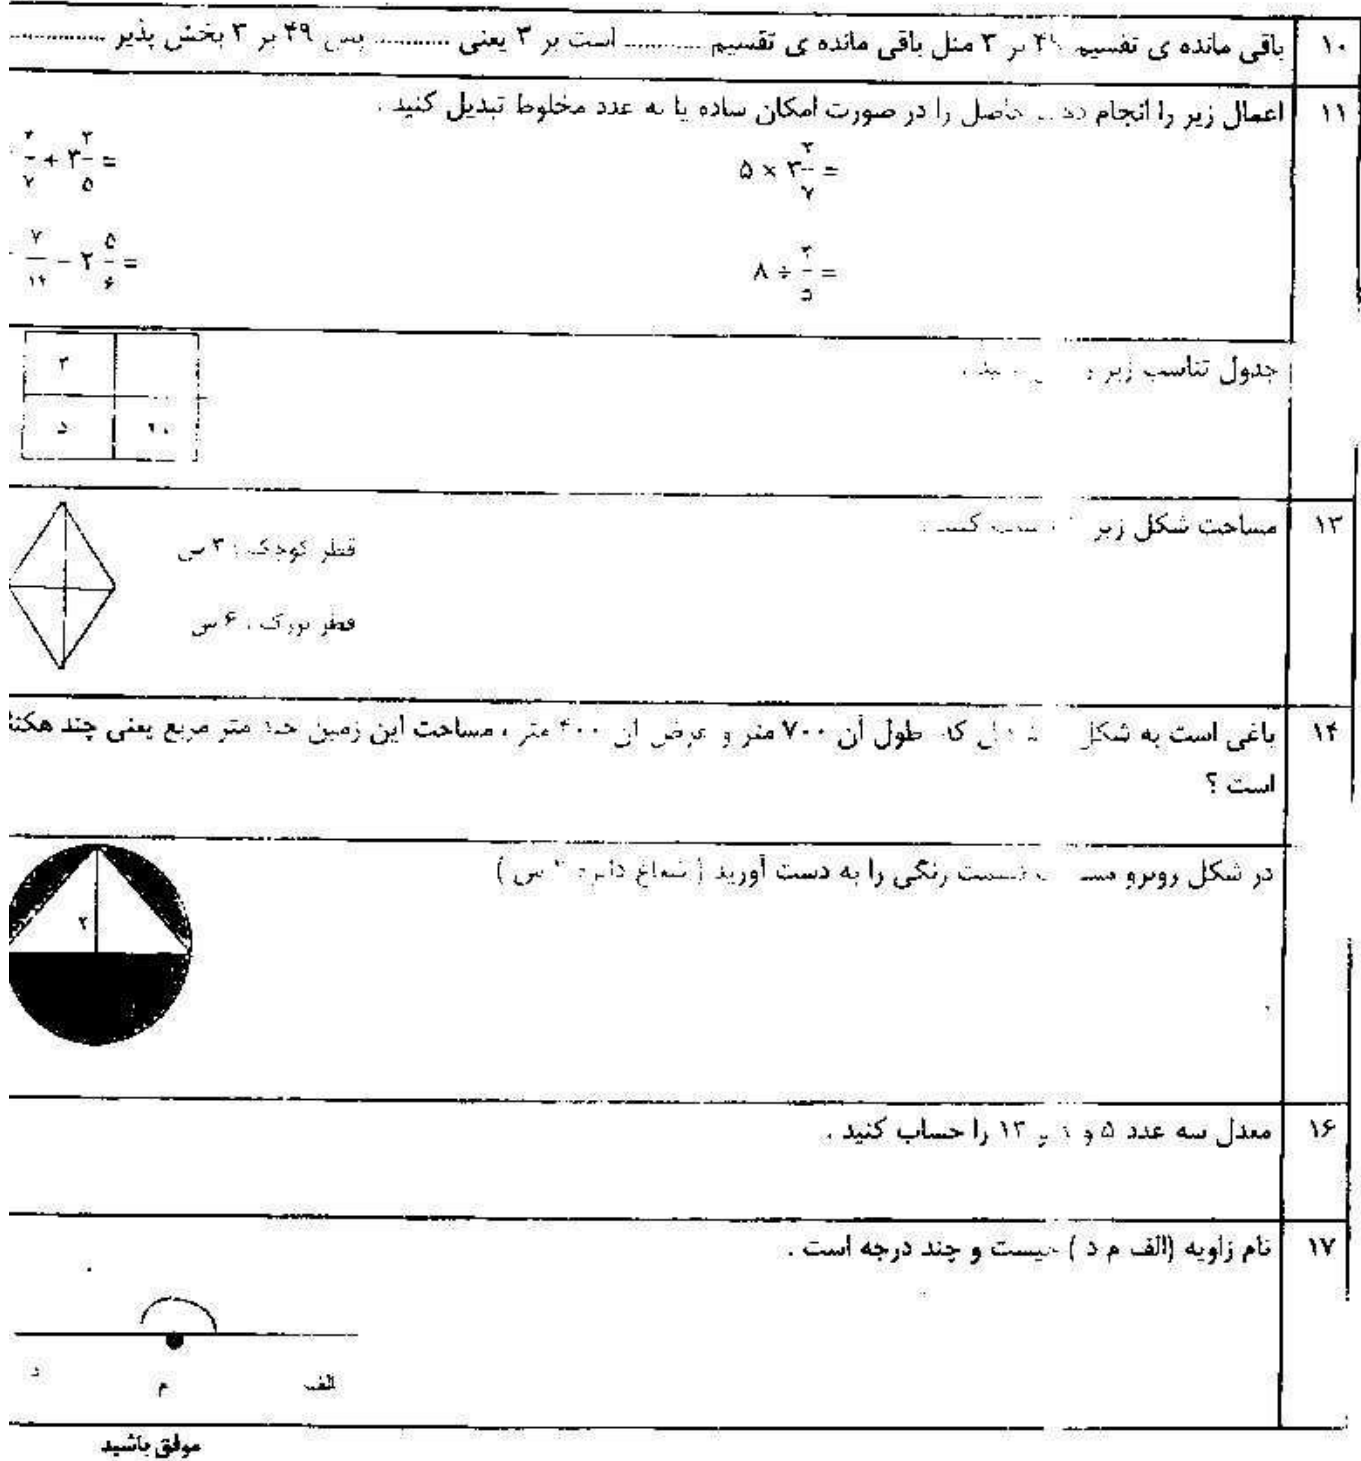 ۱۰ باقی مانده ی تقسیم ۴۹ بر ۳ مثل باقی مانده ی تقسیم ........... است بر ۳ یعنی ........... پس ۴۹ بر ۳ بخش پذیر ...............
۱۱ اعمال زیر را انجام حاصل را در صورت امکان ساده یا به عدد مخلوط تبدیل کنید .
۵ × ۳ /۷ =
+ ۳ /۵ =
۸ ÷ /۵ =
۷/۱۲ − ۲ ۵/۶ =
جدول تناسب زیر
۳
۵ ۲۰
۱۳ مساحت شکل زیر کنید
قطر کوچک : ۳ س
قطر بزرگ : ۶ س
۱۴ باغی است به شکل که طول آن ۷۰۰ متر و عرض آن ۴۰۰ متر ، مساحت این زمین چند متر مربع یعنی چند
است ؟
در شکل روبرو قسمت رنگی را به دست آورید ( شعاع دایره ۲ س )
۲
۱۶ معدل سه عدد ۵ و و ۱۳ را حساب کنید .
۱۷ نام زاویه (الف م د ) چیست و چند درجه است .
د م الف
موفق باشید